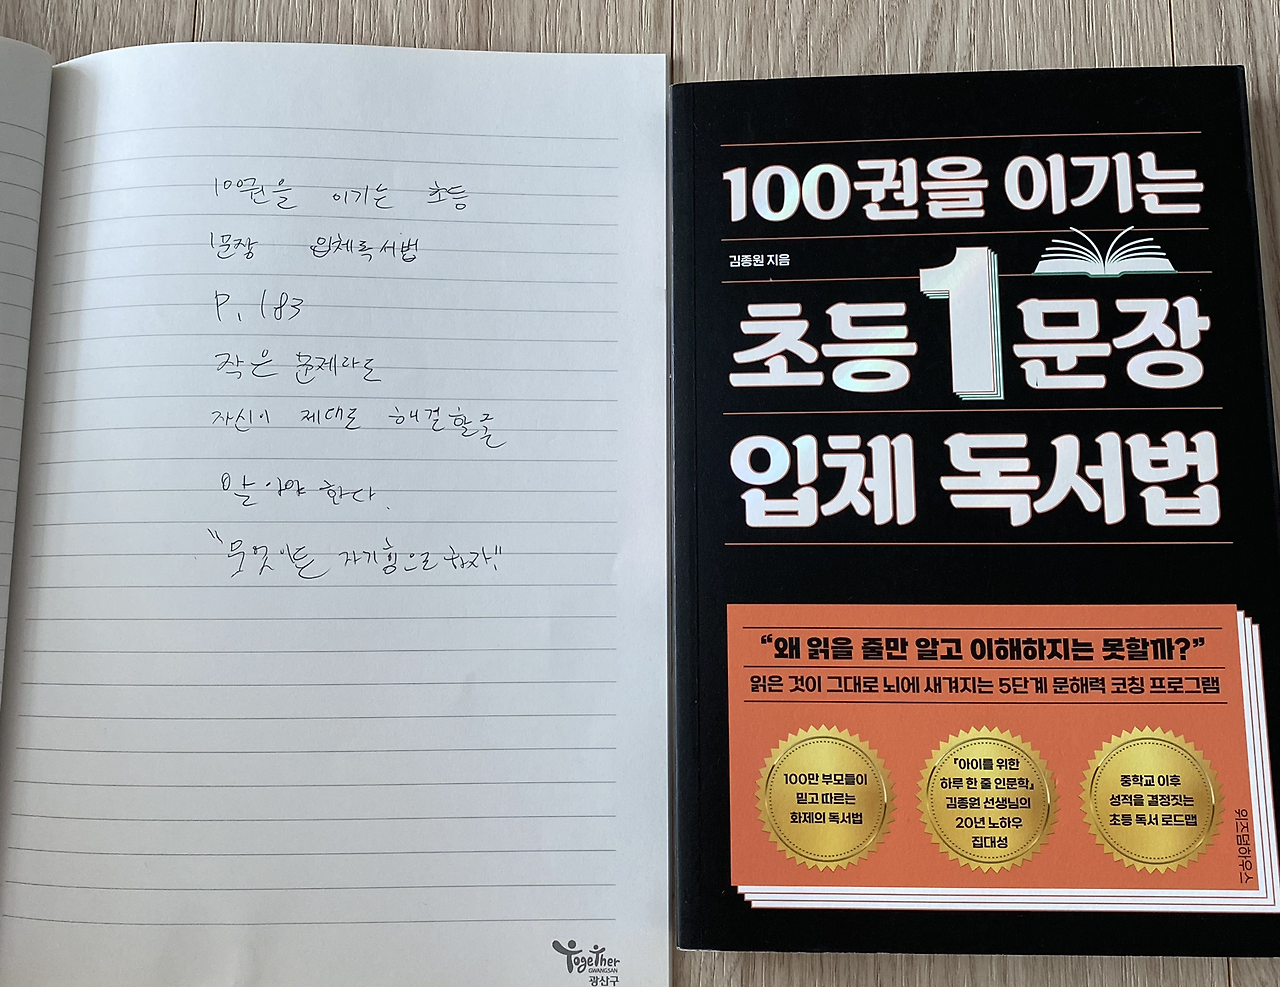 100권을 이기는 초등
1문장 입체독서법
P. 183
작은 문제라도
자신이 제대로 해결할줄
알아야 한다.
"무엇이든 자기힘으로 하자!"
Together
GWANGSAN
광산구
100권을 이기는
김종원 지음
초등 1 문장
입체 독서법
“왜 읽을 줄만 알고 이해하지는 못할까?”
읽은 것이 그대로 뇌에 새겨지는 5단계 문해력 코칭 프로그램
100만 부모들이
믿고 따르는
화제의 독서법
『아이를 위한
하루 한 줄 인문학』
김종원 선생님의
20년 노하우
집대성
중학교 이후
성적을 결정짓는
초등 독서 로드맵
위즈덤하우스